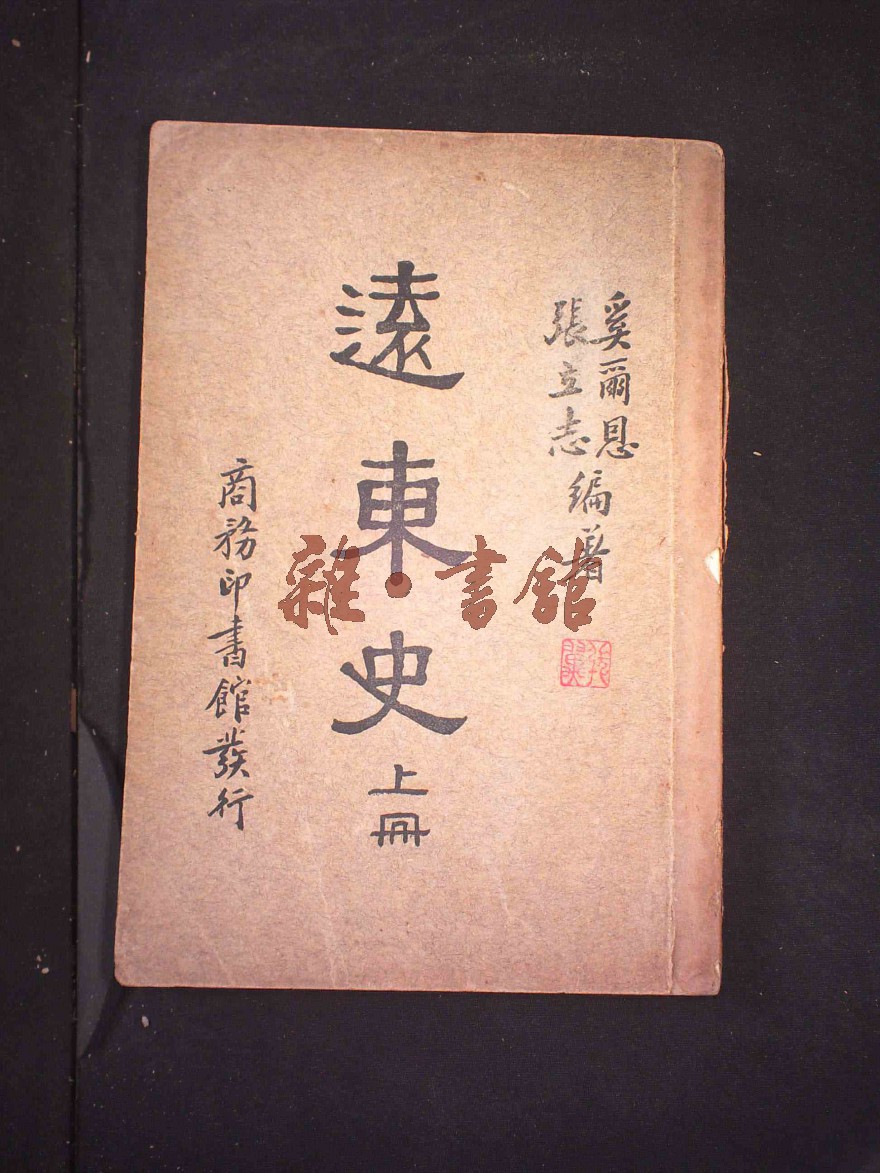 奚爾恩
張立志
編著
遠東史
上冊
商務印書館發行
雜·書館